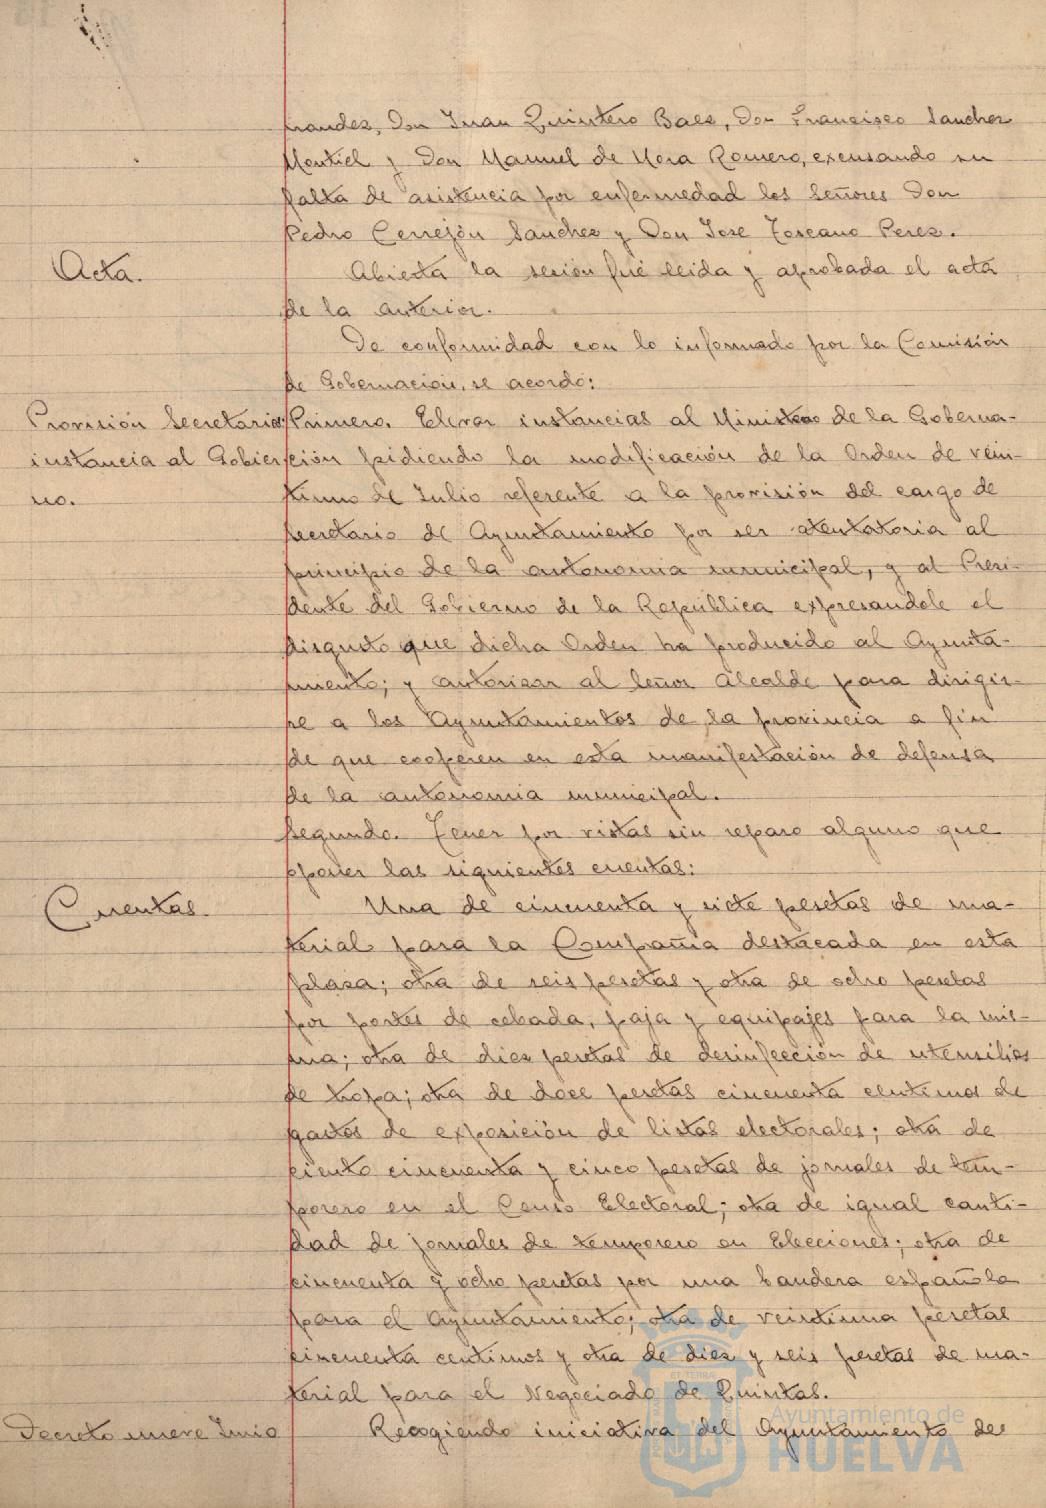 nandez, Don Juan Quintero Baez, Don Francisco Sanchez
Montiel y Don Manuel de Mora Romero, excusando su
falta de asistencia por enfermedad los Señores Don
Pedro Cerrejón Sanchez y Don Jose Toscano Perez.
Acta.
Abierta la sesión fué leida y aprobada el acta
de la anterior.
De conformidad con lo informado por la Comisión
de Gobernación, se acordó:
Provisión Secretaria:
instancia al Gobier-
no.
Primero. Elevar instancias al Ministro de la Goberna-
ción pidiendo la modificación de la Orden de vein-
tiuno de Julio referente a la provisión del cargo de
Secretario de Ayuntamiento por ser atentatoria al
principio de la autonomia municipal, y al Presi-
dente del Gobierno de la República expresandole el
disgusto que dicha Orden ha producido al Ayunta-
miento; y autorizar al Señor Alcalde para dirigir-
se a los Ayuntamientos de la provincia a fin
de que cooperen en esta manifestación de defensa
de la autonomia municipal.
Segundo. Tener por vistas sin reparo alguno que
oponer las siguientes cuentas:
Cuentas.
Una de cincuenta y siete pesetas de ma-
terial para la Compañia destacada en esta
plaza; otra de seis pesetas y otra de ocho pesetas
por portes de cebada, paja y equipajes para la mis-
ma; otra de diez pesetas de desinfección de utensilios
de tropa; otra de doce pesetas cincuenta centimos de
gastos de exposición de listas electorales; otra de
ciento cincuenta y cinco pesetas de jornales de tem-
porero en el Censo Electoral; otra de igual canti-
dad de jornales de temporero en Elecciones; otra de
cincuenta y ocho pesetas por una bandera española
para el Ayuntamiento; otra de veintiuna pesetas
cincuenta centimos y otra de diez y seis pesetas de ma-
terial para el Negociado de Quintas.
Decreto nueve Junio
Recogiendo iniciativa del Ayuntamiento de
Ayuntamiento de
HUELVA